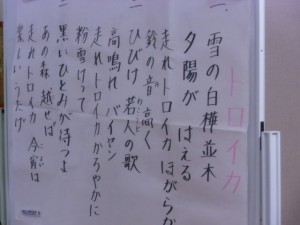 トロイカ
一、
雪の白樺並木
夕陽が はえる
走れトロイカ ほがらか
鈴の音 高く
二
ひびけ 若人の歌
高鳴れ バイヤン
走れトロイカ かろやかに
粉雪けって
三
黒いひとみが 待つよ
あの森 越せば
走れトロイカ 今宵は
楽しい うたげ